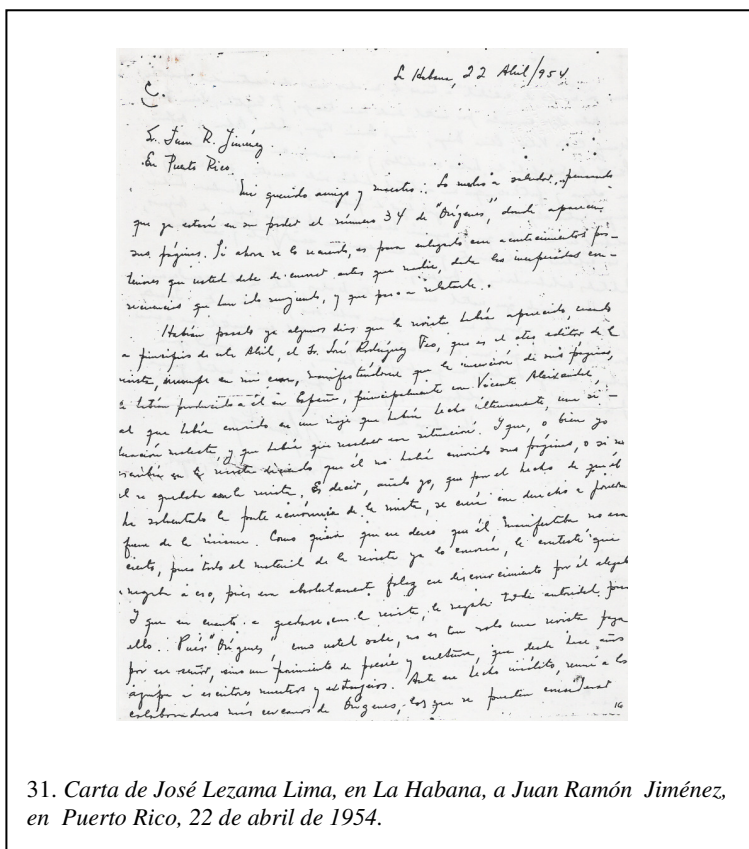 La Habana, 22 Abril/954
Sr. Juan R. Jiménez
En Puerto Rico.
Mi querido amigo y maestro: Lo vuelvo a saludar, pensando
que ya estará en su poder el número 34 de "Orígenes", donde aparecen
sus páginas. Si ahora se lo recuerdo, es para enlazarlo con acontecimientos pos-
teriores que usted debe de conocer antes que nadie, dada las inesperadas con-
secuencias que han ido surgiendo, y que paso a relatarle.
Habían pasado ya algunos días que la revista había aparecido, cuando
a principios de este Abril, el Sr. José Rodríguez Feo, que es el otro editor de la
revista, irrumpe en mi casa, manifestándome que la inserción de sus páginas,
le habían producido a él en España, principalmente con Vicente Aleixandre,
al que había conocido en un viaje que había hecho últimamente, una si-
tuación molesta, y que había que resolver esa situación. Y que, o bien yo
escribía en la revista diciendo que él no había conocido sus páginas, o si no
él se quedaba con la revista. Es decir, añado yo, que por el hecho de que él
ha solventado la parte económica de la revista, se creía con derecho a
fuera de la misma. Como quiera que ese deseo que él manifestaba no era
cierto, pues todo el material de la revista ya lo conocía, le contesté que
negaba a eso, pues era absolutamente falaz ese desconocimiento por él alegado
Y que en cuanto a quedarse con la revista, le negaba toda autoridad para
ello. Pues "Orígenes", como usted sabe, no es tan solo una revista paga
por un señor, sino un movimiento de poesía y cultura, que desde hace años
agrupa a escritores nuestros y extranjeros. Ante ese hecho insólito, reuní a los
colaboradores más cercanos de Orígenes, los que se pueden considerar
16
31. Carta de José Lezama Lima, en La Habana, a Juan Ramón Jiménez,
en Puerto Rico, 22 de abril de 1954.